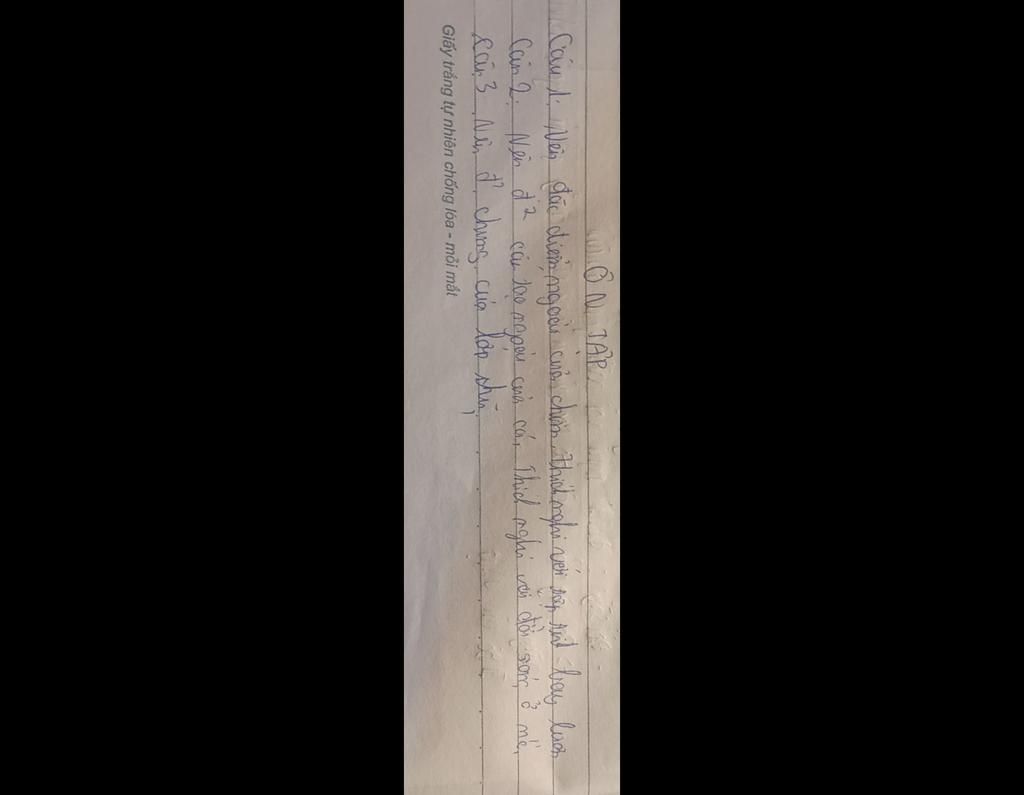 ÔN TẬP
Câu 1: Nêu đặc điểm ngoài của chim thích nghi với tập tính bay lượn
Câu 2: Nêu đ² cấu tạo ngoài của cá thích nghi với đời sống ở nc
Câu 3: Nêu đ² chung của lớp thú
Giấy trắng tự nhiên chống lóa - mỏi mắt